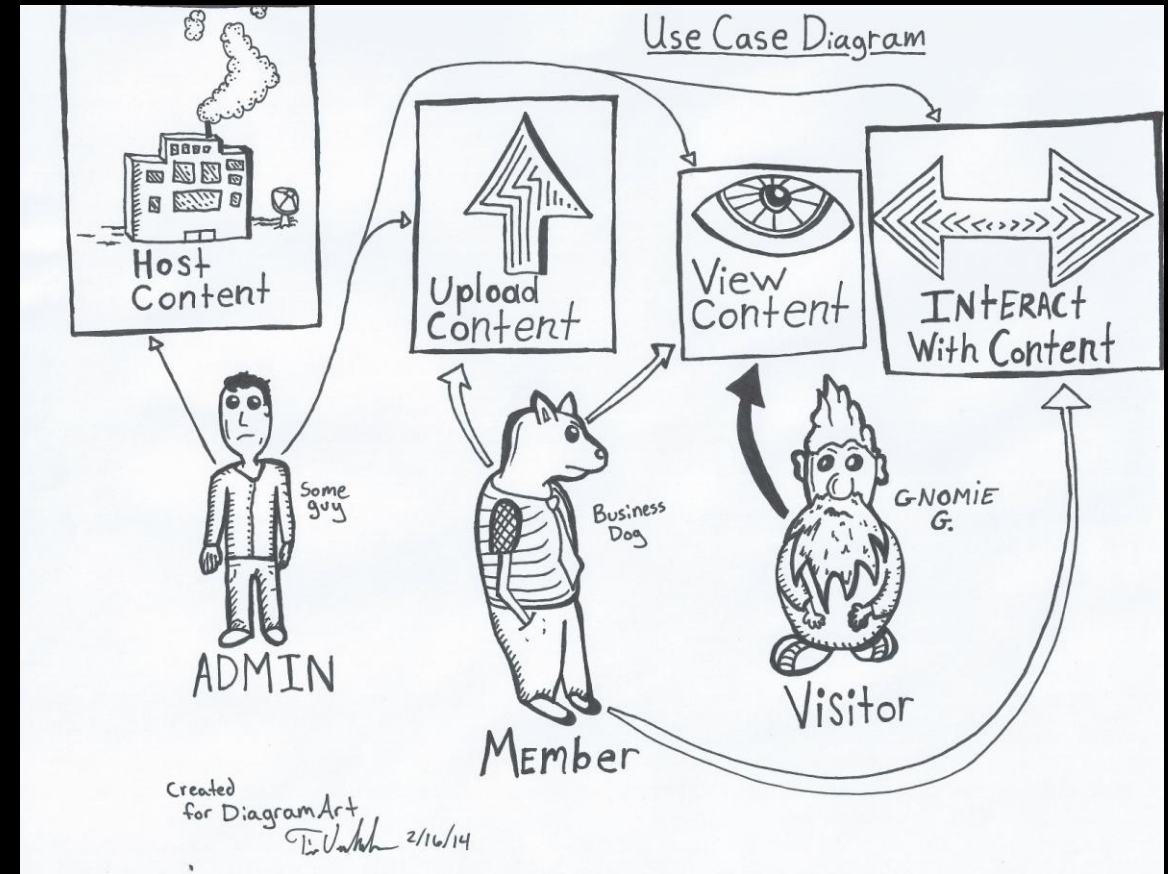 Use Case Diagram
Host
Content
Upload
Content
View
Content
INtERACt
With Content
Some
guy
Business
Dog
GNOMiE
G.
ADMIN
Member
Visitor
Created
for Diagram Art
2/16/14